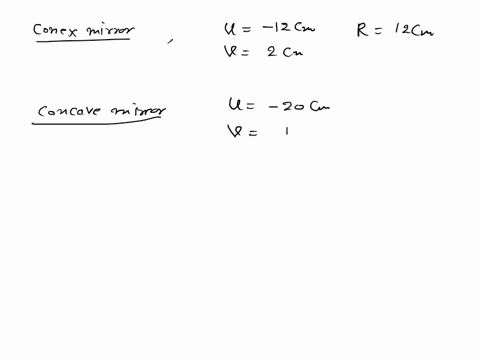 Conex mirror , u = -12 cm R = 12 cm
v = 2 cm
Concave mirror u = -20 cm
v = 1